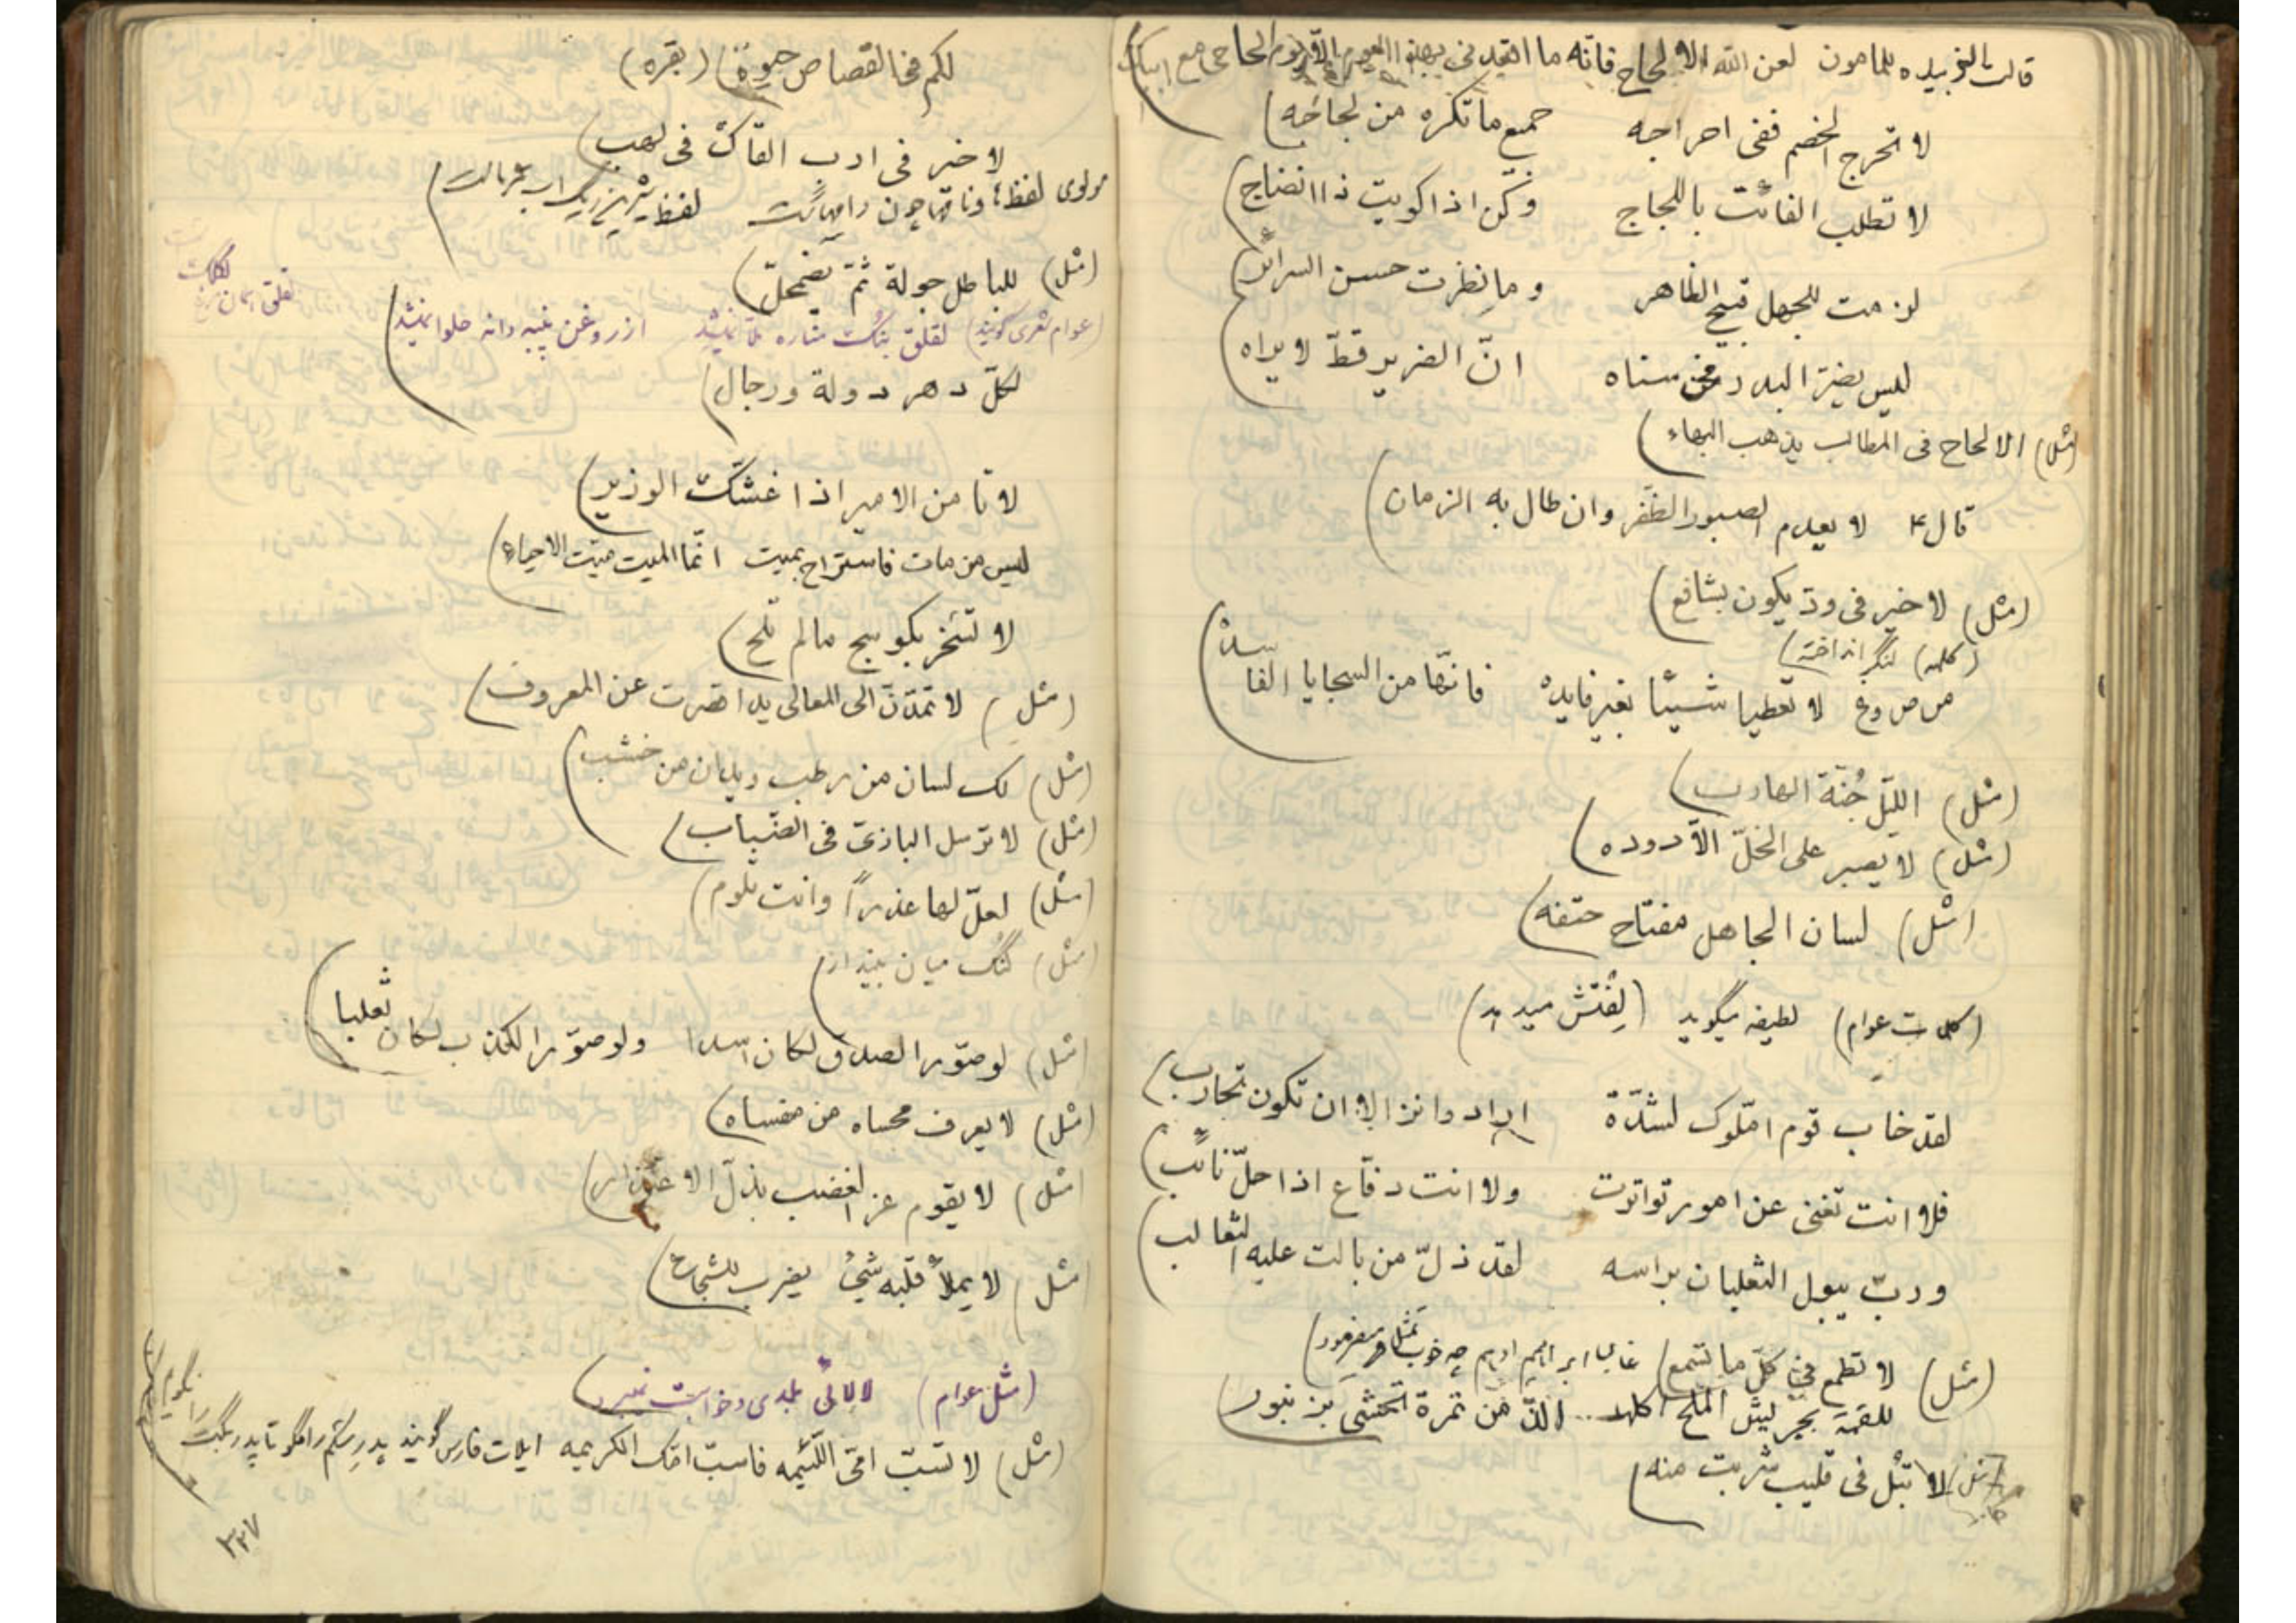 قالت الزبیده للمامون لعن الله الالحاج فانّه ما اقعدنی بهذا الیوم الّا یوم لحاجی مع ابیک
لا تحرج الخصم ففی احراجه جمیع ما تکره من لجاجه
لا تطلب الفائت باللجاج وکن اذا کویت ذا انضاج
لزمت للجهل قبیح الظاهر وما نظرت حسن السرائر
لیس یضرّ البدر فی سناه انّ الضریر قطّ لا یراه
(مثل) الالحاح فی المطالب یذهب البهاء
قال ع لا یعدم الصبور الظفر وان طال به الزمان
(مثل) لا خیر فی ودّ یکون بشافع
(کلمه) لنگر انداخته
لا تعطیا شیئا بغیر فایده فانّها من السجایا الفاسده
(مثل) اللیل جُنّة الهارب
(مثل) لا یصبر علی الخلّ الّا دوده
(مثل) لسان الجاهل مفتاح حتفه
(کلمات عوام) لطیفه میگوید (لِفتش میدهد)
لقد خاب قوم امّلوک لشدّة ارادوا نزالا ان تکون تحارب
فلا انت تغنی عن امور تواترت ولا انت دفّاع اذا حلّ نائب
وربّ یبول الثعلبان براسه لقد ذلّ من بالت علیه الثعالب
(مثل) لا تطمع فی کلّ ما تسمع
للقمة بجریش الملح اکلها الذّ من تمرة تحشی بزنبور
(مثل) لا تبل فی قلیب شربت منه
لکم فی القصاص حیوة (بقره)
لا خیر فی ادب القاک فی لهب
مولوی لفظها و نامها چون دامهاست لفظ شیرین ریگ آب عمر ماست
(مثل) للباطل جولة ثمّ یضمحلّ
(عوام شعری گویند) لقلق بنگ مناره ملّا نمیشد از روغن پنبه دانه حلوا نمیشد
لکلّ دهر دولة ورجال
لا تامن الامیر اذا غشّک الوزیر
لیس من مات فاستراح بمیت انّما المیت میّت الاحیاء
لا تسخر بکوسج مالم تلح
(مثل) لا تمدّنّ الی المعالی یدا قصرت عن المعروف
(مثل) لک لسان من رطب ویدان من خشب
(مثل) لا ترسل البازیّ فی الضّباب
(مثل) لعلّ لها عذراً وانت تلوم
(مثل) گنگ میان بینداز
(مثل) لو صوّر الصدق لکان اسدا ولو صوّر الکذب لکان ثعلبا
(مثل) لا یعرف محساه من مفساه
(مثل) لا یقوم عزّ الغضب بذلّ الاعتذار
(مثل) لا یملأ قلبه شیٌ یضرب للشجاع
(مثل عوام) لالائی بلدی و خوابت نمیبرد
(مثل) لا تسبّ امّی اللّئیمه فاسبّ امّک الکریمه ایلات فارس گویند پدر رستم را مگو تا پدر بیگت را نگویم
۳۲۷